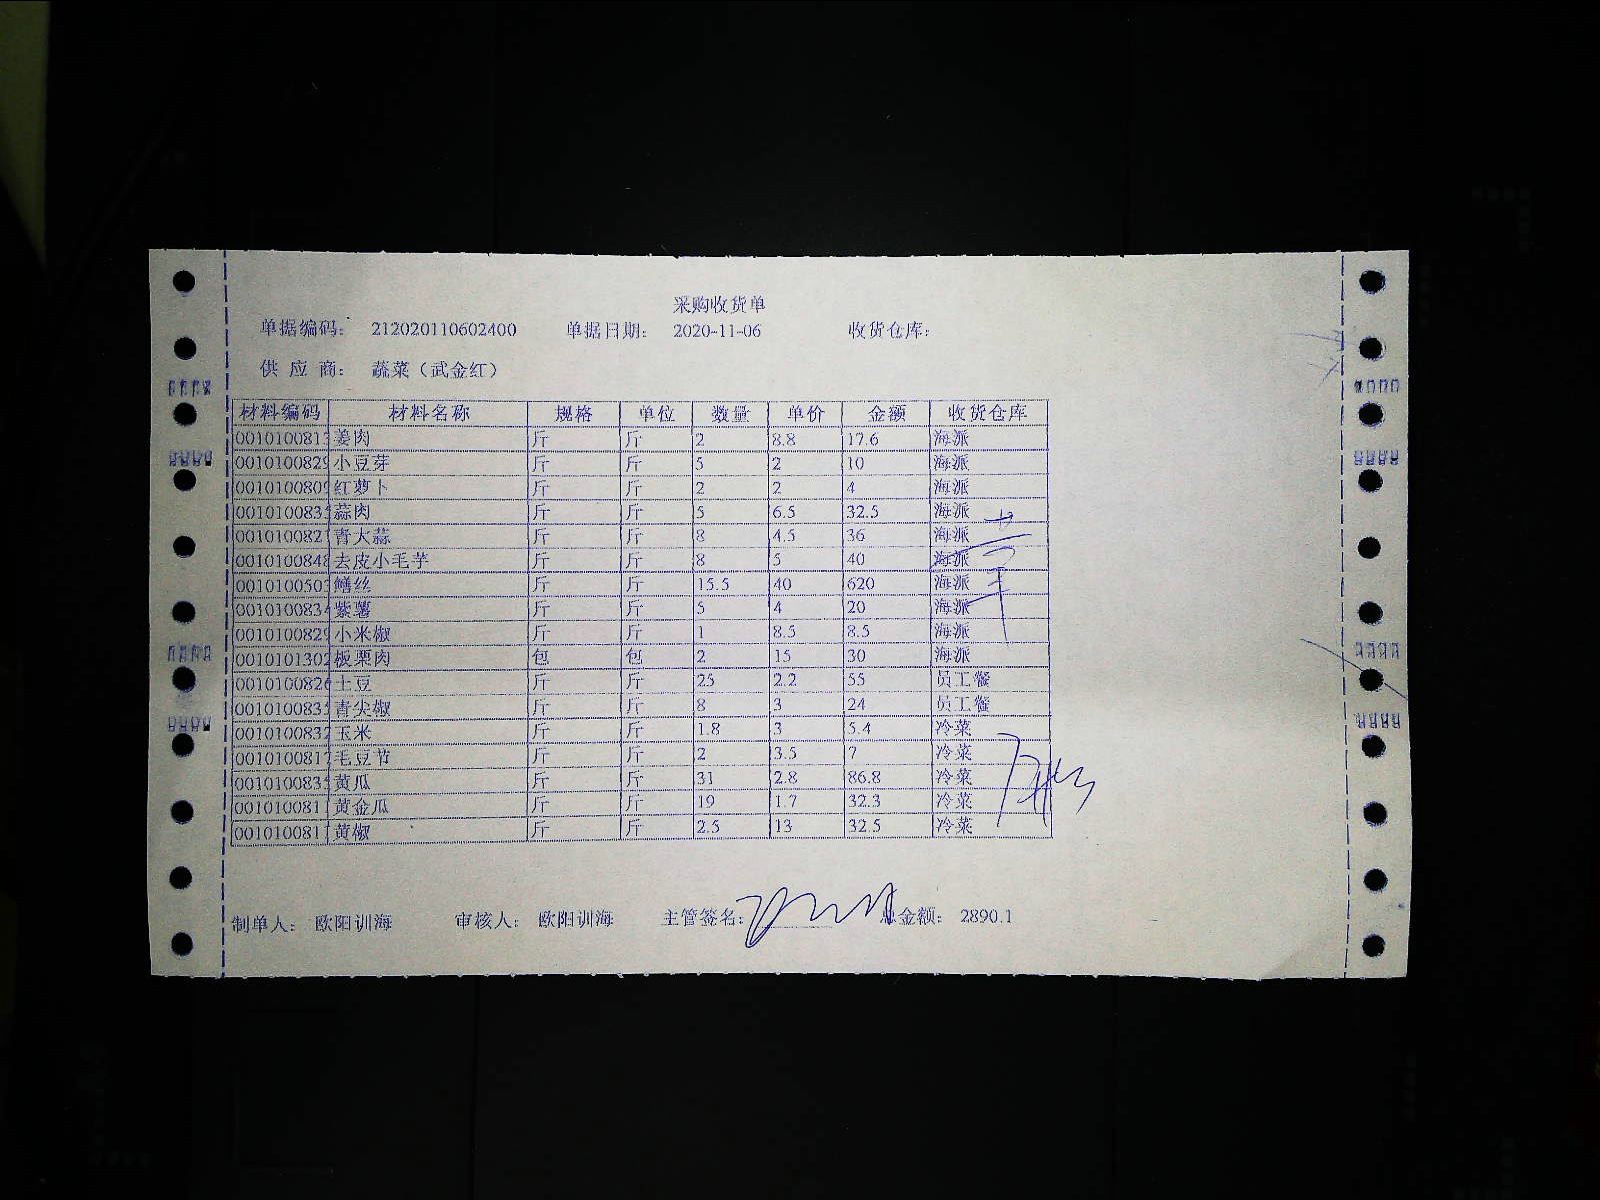 采购收货单
单据编码： 212020110602400 单据日期： 2020-11-06 收货仓库：
供 应 商： 蔬菜（武金红）
材料编码 材料名称 规格 单位 数量 单价 金额 收货仓库
001010081 姜肉 斤 斤 2 8.8 17.6 海派
001010082 小豆芽 斤 斤 5 2 10 海派
001010080 红萝卜 斤 斤 2 2 4 海派
001010083 蒜肉 斤 斤 5 6.5 32.5 海派
001010082 青大蒜 斤 斤 8 4.5 36 海派
001010084 去皮小毛芋 斤 斤 8 5 40 海派
001010050 鳝丝 斤 斤 15.5 40 620 海派
001010083 紫薯 斤 斤 5 4 20 海派
001010082 小米椒 斤 斤 1 8.5 8.5 海派
001010130 板栗肉 包 包 2 15 30 海派
001010082 土豆 斤 斤 25 2.2 55 员工餐
001010083 青尖椒 斤 斤 8 3 24 员工餐
001010083 玉米 斤 斤 1.8 3 5.4 冷菜
001010081 毛豆节 斤 斤 2 3.5 7 冷菜
001010083 黄瓜 斤 斤 31 2.8 86.8 冷菜
001010081 黄金瓜 斤 斤 19 1.7 32.3 冷菜
001010081 黄椒 斤 斤 2.5 13 32.5 冷菜
制单人： 欧阳训海 审核人： 欧阳训海 主管签名： 总金额： 2890.1